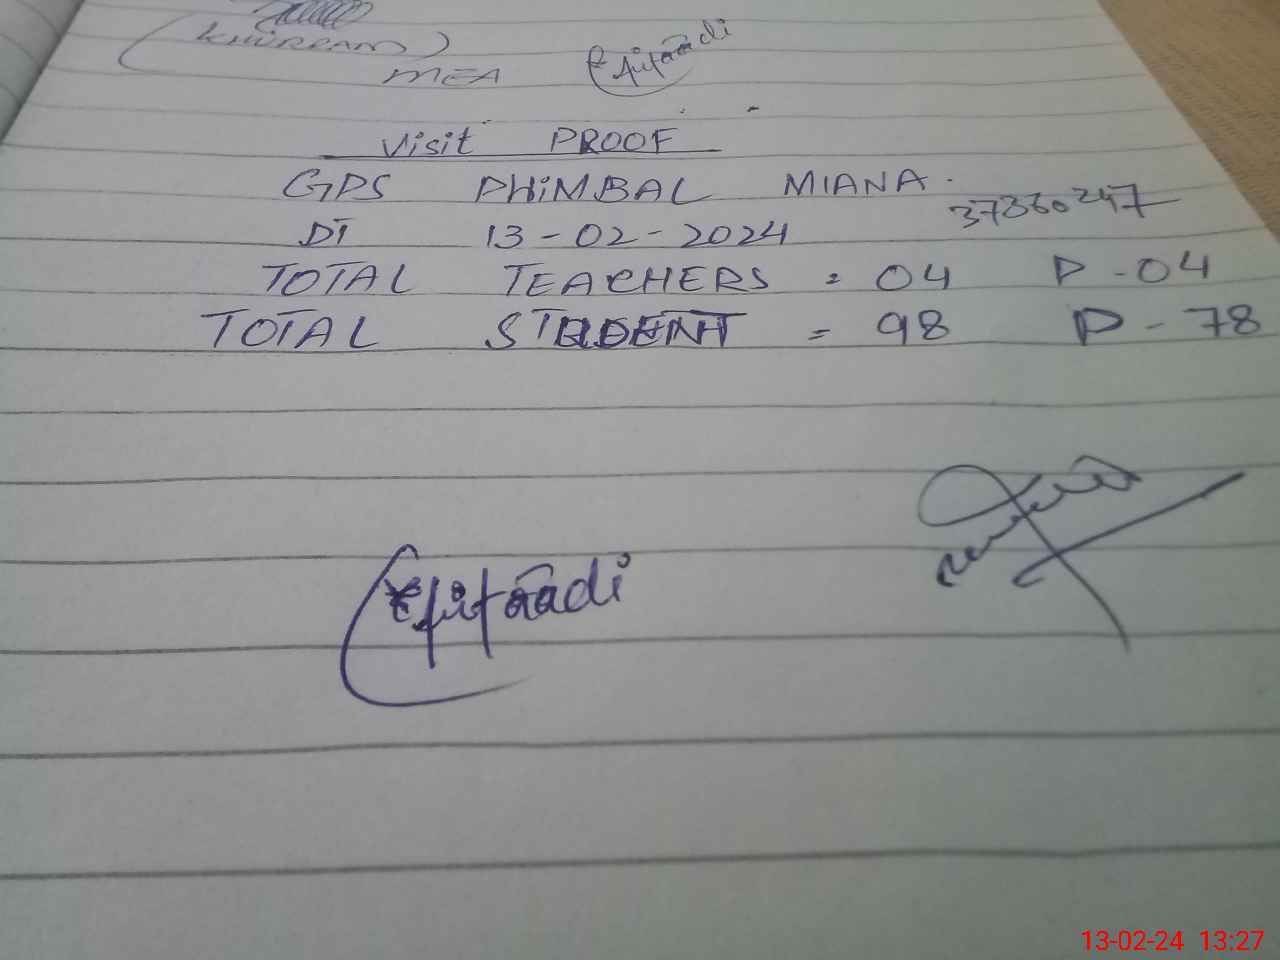 (KHURRAM)
MEA
Visit PROOF
GPS PHIMBAL MIANA.
37360247
DT 13-02-2024
TOTAL TEACHERS = 04 P-04
TOTAL STUDENT = 98 P-78
13-02-24 13:27